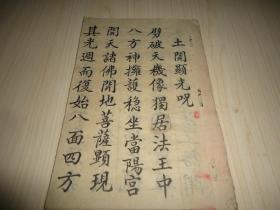 土開顯光呪
劈破天機像獨居法王中
八方神擁護穩坐當陽宮
開天諸佛開地菩薩顯現
其光週而復始八面四方